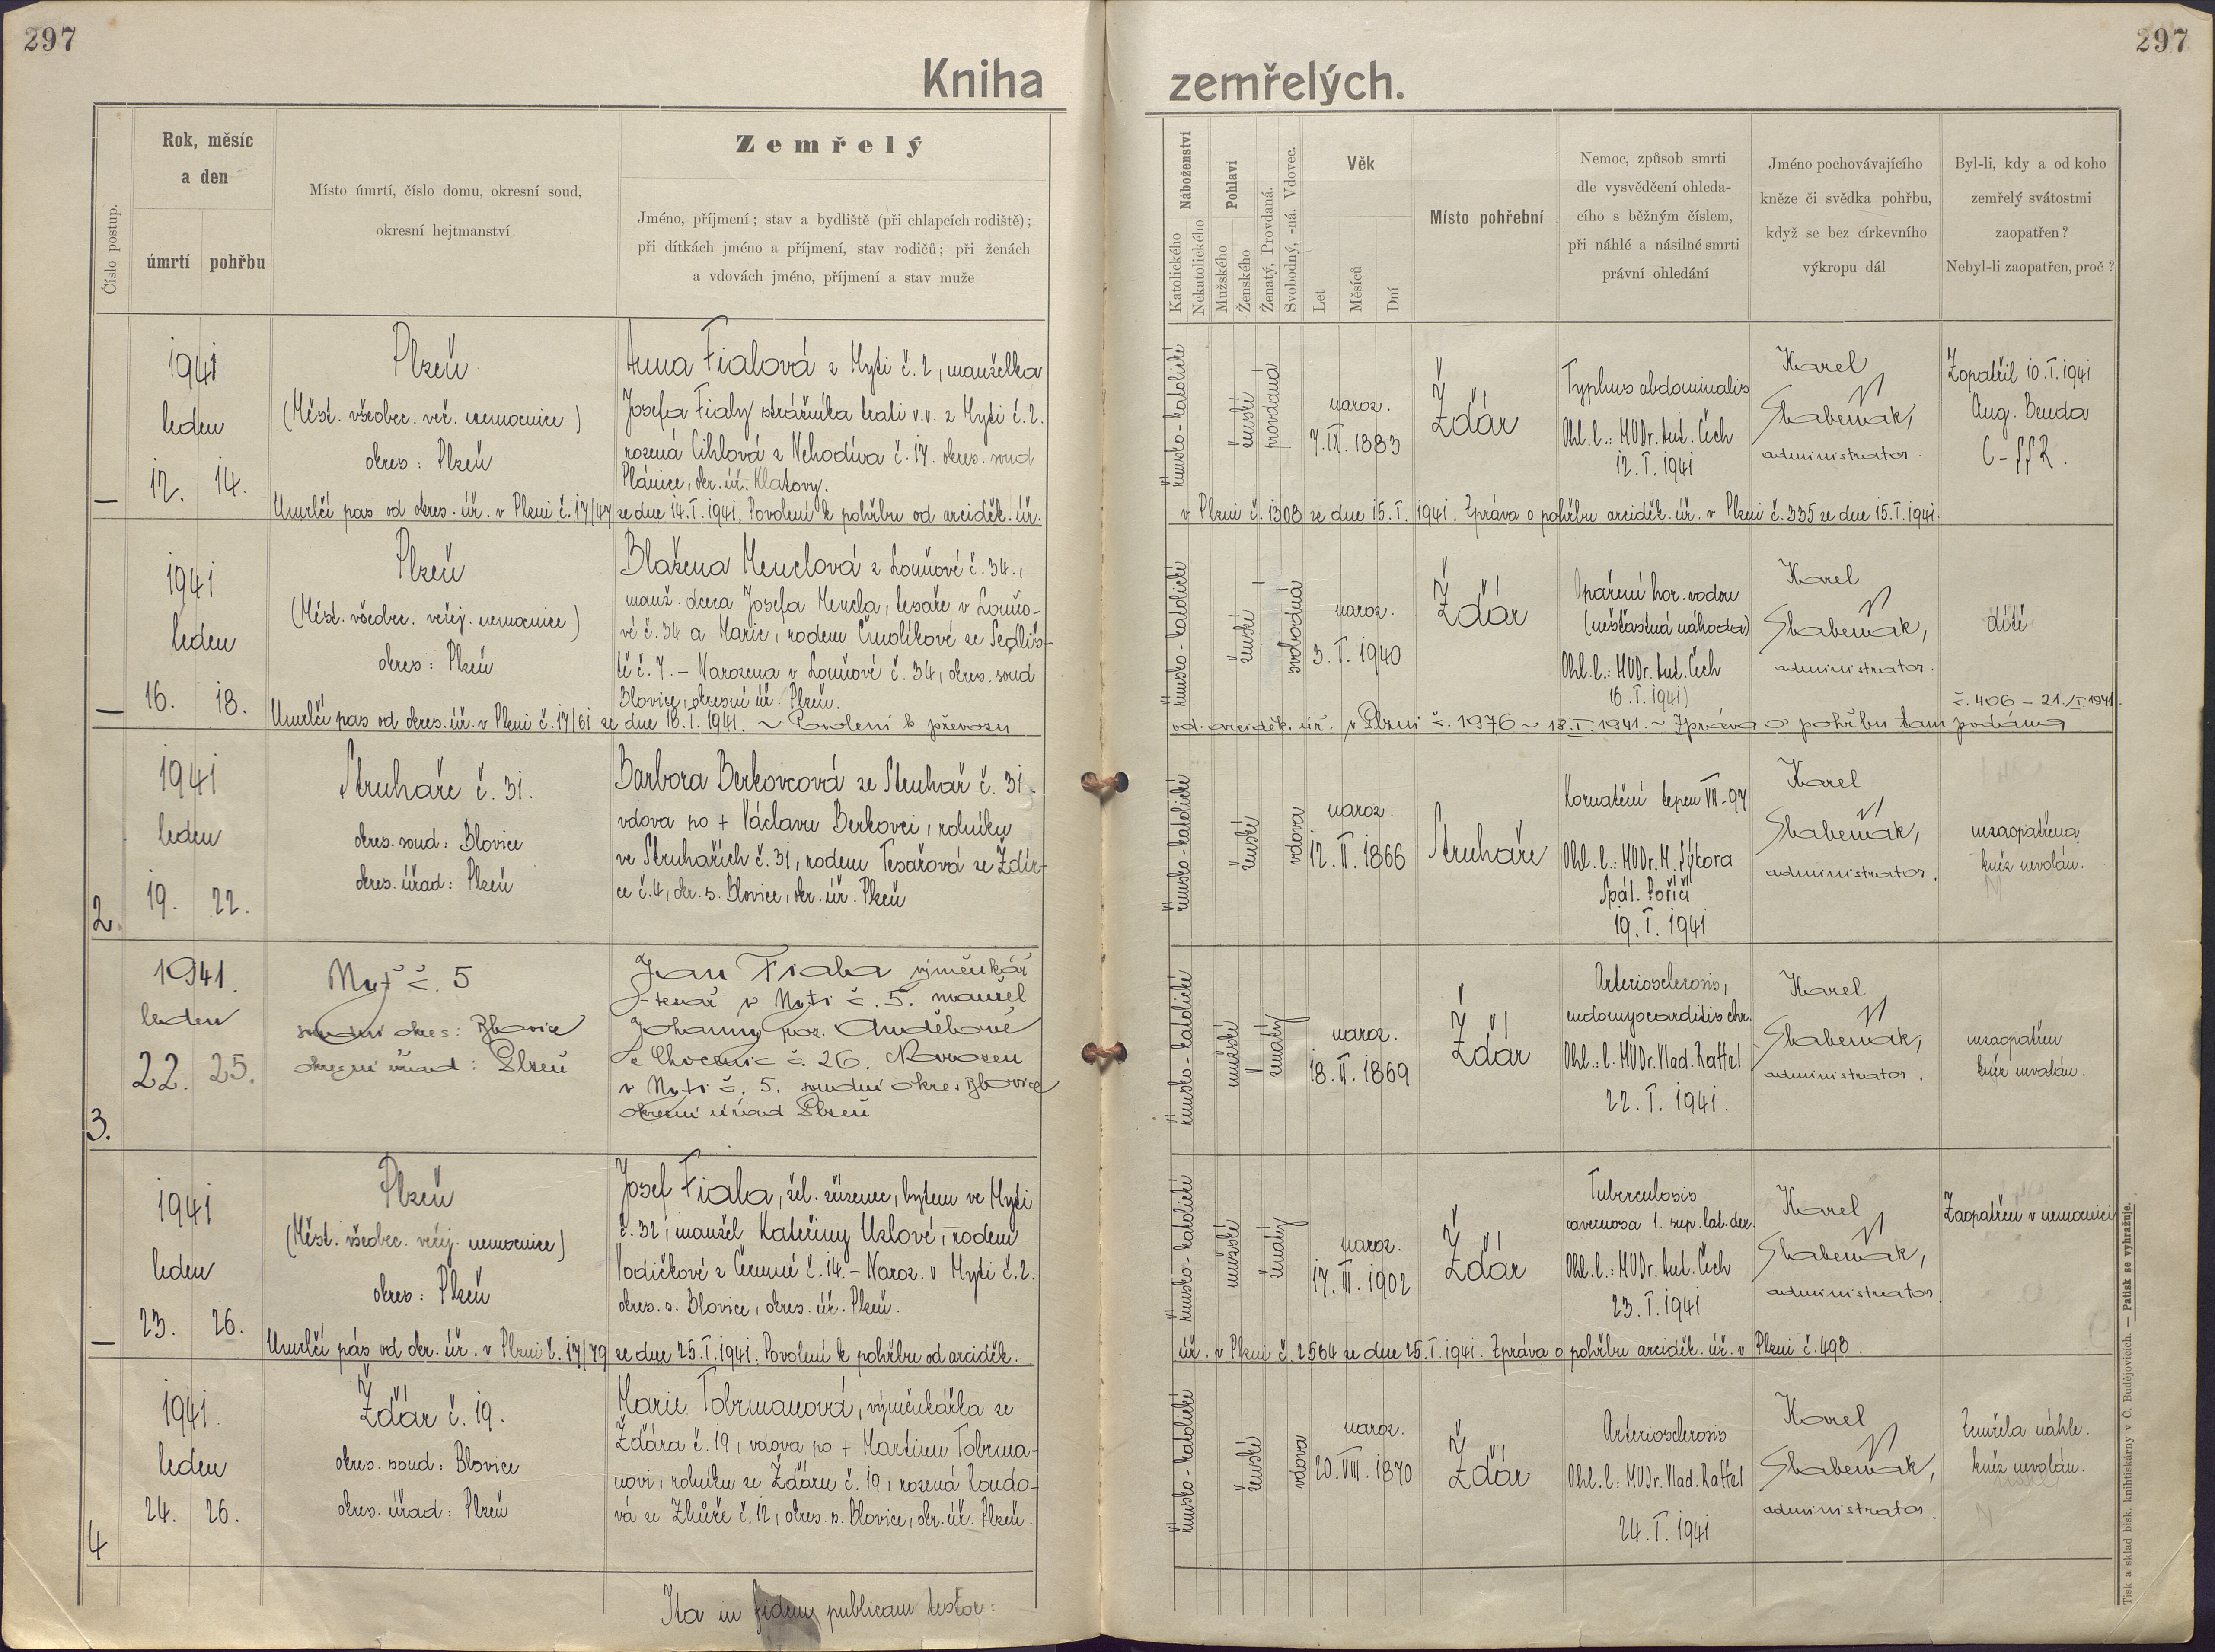 297
297
Kniha zemřelých.
Číslo postup.
Rok, měsíc
a den
úmrtí
pohřbu
Místo úmrtí, číslo domu, okresní soud,
okresní hejtmanství
Zemřelý
Jméno, příjmení; stav a bydliště (při chlapcích rodiště);
při dítkách jméno a příjmení, stav rodičů; při ženách
a vdovách jméno, příjmení a stav muže
Náboženství
Katolického
Nekatolického
Pohlaví
Mužského
Ženského
Ženatý, Provdaná.
Svobodný, -ná. Vdovec.
Věk
Let
Měsíců
Dní
Místo pohřební
Nemoc, způsob smrti
dle vysvědčení ohleda-
cího s běžným číslem,
při náhlé a násilné smrti
právní ohledání
Jméno pochovávajícího
kněze či svědka pohřbu,
když se bez církevního
výkropu dál
Byl-li, kdy a od koho
zemřelý svátostmi
zaopatřen?
Nebyl-li zaopatřen, proč?
—
1941
leden
12. 14.
Plzeň
(Měst. všeobec. veř. nemocnice)
okres: Plzeň
Anna Fialová z Mýti č. 2, manželka
Josefa Fialy strážníka trati v.v. z Mýti č. 2.
rozená Cihlová z Nehodíva č. 17. okres. soud
Plánice, okr. úř. Klatovy.
římsko-katolické
ženské
provdaná
naroz.
7. IX. 1883
Žďár
Typhus abdominalis
Ohl. l.: MUDr. Ant. Čech
12. I. 1941
Karel
administrator.
Zopatřil 10. I. 1941
Aug. Benda
C-SSR.
Umrlčí pas od okres. úř. v Plzni č. 17/47 ze dne 14. I. 1941. Povolení k pohřbu od arciděk. úř.
v Plzni č. 1308 ze dne 15. I. 1941. Zpráva o pohřbu arciděk. úř. v Plzni č. 335 ze dne 15. I. 1941.
—
1941
leden
16. 18.
Plzeň
(Měst. všeobec. veřej. nemocnice)
okres: Plzeň
Blažena Menclová z Louňové č. 34.,
manž. dcera Josefa Mencla, tesaře v Louňo-
vé č. 34 a Marie, rodem Čmolíkové ze Sedliš-
tě č. 7. – Narozena v Louňové č. 34, okres. soud
Blovice, okresní úř. Plzeň.
římsko-katolické
ženské
svobodná
naroz.
3. I. 1940
Žďár
Opaření hor. vodou
(nešťastná náhoda)
Ohl. l.: MUDr. Ant. Čech
16. I. 1941)
Karel
administrator.
dítě
č. 406 – 21./I. 1941.
Umrlčí pas od okres. úř. v Plzni č. 17/61 ze dne 18. I. 1941. ~ Povolení k převozu
od arciděk. úř. v Plzni č. 1976 ~ 18. I. 1941. ~ Zpráva o pohřbu tam podána
2.
1941
leden
19. 22.
Struhaře č. 31.
okres. soud: Blovice
okres. úřad: Plzeň
Barbora Berkovcová ze Struhař č. 31.
vdova po + Václavu Berkovci, rolníku
ve Struhařích č. 31, rodem Tesařová ze Ždír-
ce č. 4, okr. s. Blovice, okr. úř. Plzeň
římsko-katolické
ženské
vdova
naroz.
12. II. 1866
Struhaře
Kornatění tepen VII-97
Ohl. l.: MUDr. M. Sýkora
Spál. Poříčí
19. I. 1941
Karel
administrator.
nezaopatřena
kněz nevolán.
3.
1941.
leden
22. 25.
Mýť č. 5
soudní okres: Blovice
okresní úřad: Plzeň
Jan Fiala výměnkář
tesař v Mýti č. 5. manžel
Johanny roz. Andělové
z Chocenic č. 26. Narozen
v Mýti č. 5. soudní okres Blovice
okresní úřad Plzeň
římsko-katolické
mužské
ženatý
naroz.
18. II. 1869
Žďár
Arteriosclerosis,
endomyocarditis chr.
Ohl. l: MUDr. Vlad. Raffel
22. I. 1941.
Karel
administrator.
nezaopatřen
kněz nevolán.
—
1941
leden
23. 26.
Plzeň
(Měst. všeobec. veřej. nemocnice)
okres: Plzeň
Josef Fiala, žel. zřízenec, bytem ve Mýti
č. 32, manžel Kateřiny Uzlové, rodem
Vodičkové z Čermné č. 14. – Naroz. v Mýti č. 2.
okres. s. Blovice, okres. úř. Plzeň.
římsko-katolické
mužské
ženatý
naroz.
17. III. 1902
Žďár
Tuberculosis
cavernosa l. sup. lat. dex.
Ohl. l.: MUDr. Ant. Čech
23. I. 1941
Karel
administrator.
Zaopatřen v nemocnici
Umrlčí pás od okr. úř. v Plzni č. 17/79 ze dne 25. I. 1941. Povolení k pohřbu od arciděk.
úř. v Plzni č. 2564 ze dne 25. I. 1941. Zpráva o pohřbu arciděk. úř. v Plzni č. 498.
4
1941.
leden
24. 26.
Žďár č. 19.
okres. soud: Blovice
okres. úřad: Plzeň
Marie Tobrmanová, výměnkářka ze
Žďára č. 19, vdova po + Martinu Tobrma-
novi, rolníku ze Žďáru č. 19, rozená Loudo-
vá ze Zhůře č. 12, okres. s. Blovice, okr. úř. Plzeň.
římsko-katolické
ženské
vdova
naroz.
20. VIII. 1870
Žďár
Arteriosclerosis
Ohl. l.: MUDr. Vlad. Raffel
24. I. 1941
Karel
administrator.
Zemřela náhle.
kněz nevolán.
Ita in fidem publicam testor:
Tisk a sklad bisk. knihtiskárny v Č. Budějovicích. — Patisk se vyhražuje.